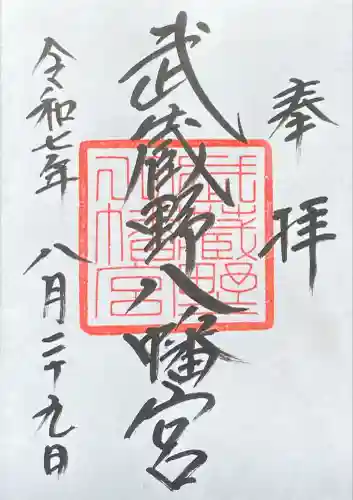 奉拝
武蔵野八幡宮
武蔵野八幡宮
令和七年八月二十九日